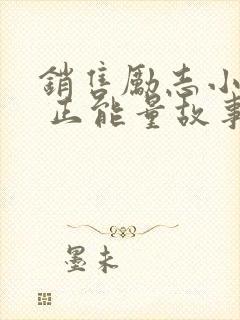 銷售勵志小
正能量故事
墨未